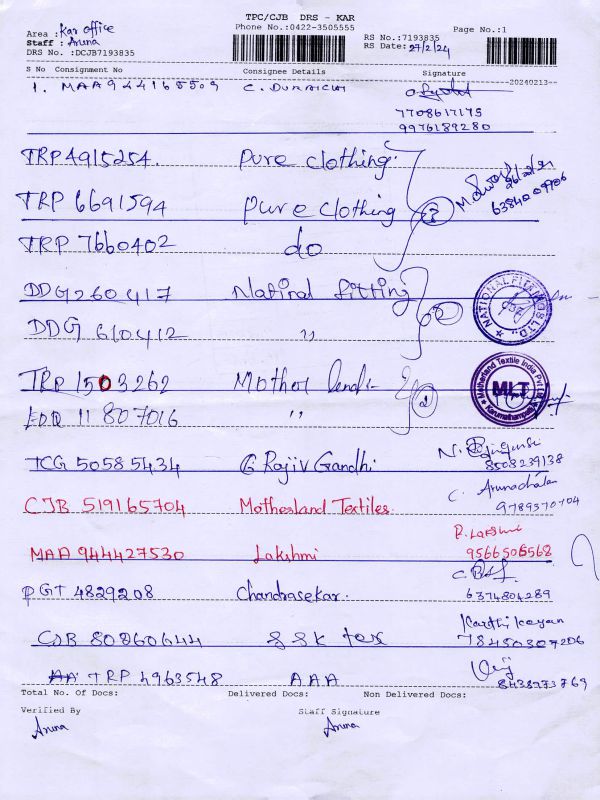 TPC/CJB DRS - KAR
Phone No.:0422-3505555
Page No.:1
Area : Kar office
Staff : Aruna
DRS No. :DCJB7193835
RS No.:7193835
RS Date: 27/2/24
S No Consignment No Consignee Details Signature
20240213
1. MAA944165509 C. DURAICHI
7708617175
9976189280
TRP 4915254. Pure clothing.
TRP 6691594 Pure clothing
TRP 7660402 do
DDG 260417 Natiral fitting
DDG 610412 ,,
TRP 1503262 Mother
EDQ 11807016 ,,
Motherland Textile India Pvt Ltd
MLT
TCG 50585434 G Rajiv Gandhi
8508239138
CJB 519165704 Motherland Textiles.
C. Arunachalam
9789370704
MAA 944427530 Lakshmi
R. Lakshmi
9566506568
PGT 4829208 Chandrasekar.
6374804289
CJB 80860644 SSK tex
Karthikeyan
78450307206
TRP 4963548 AAA
8438973769
Total No. Of Docs: Delivered Docs: Non Delivered Docs:
Verified By Staff Signature
Aruna Aruna